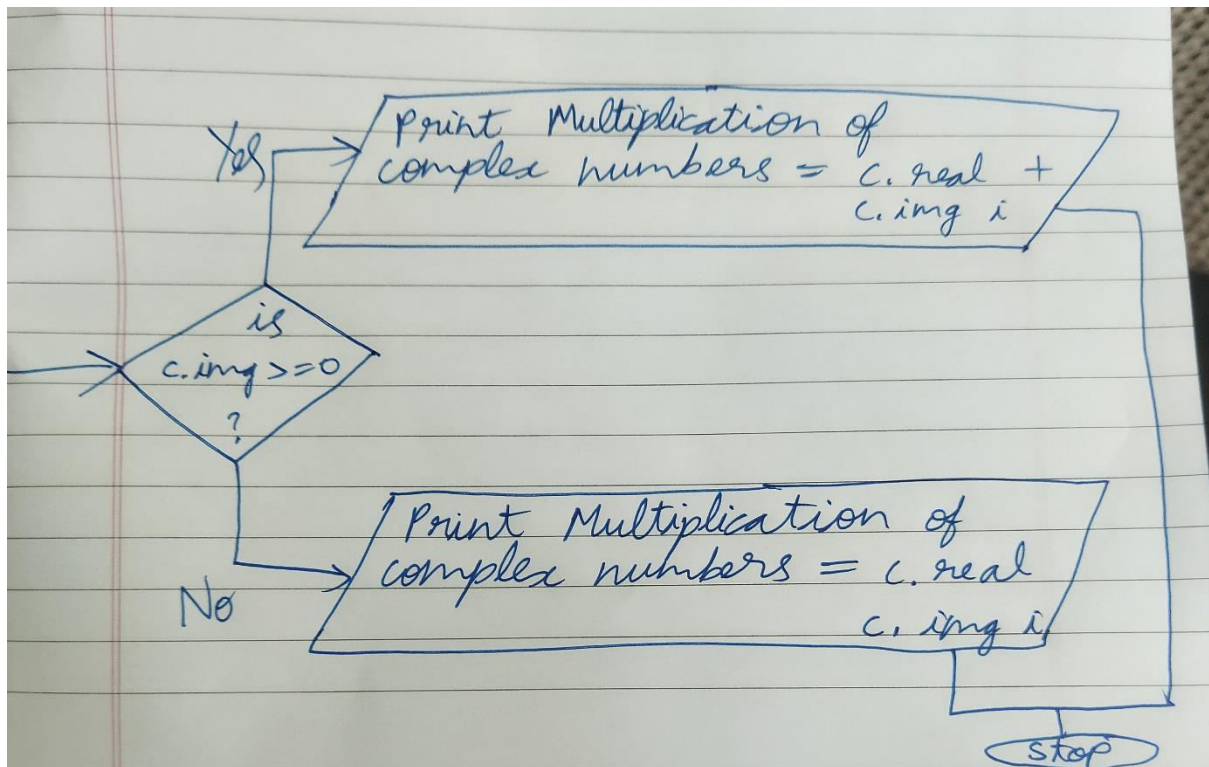 Yes
Print Multiplication of
complex numbers = c. real +
c. img i
is
c.img >=0
?
No
Print Multiplication of
complex numbers = c. real
c. img i
Stop